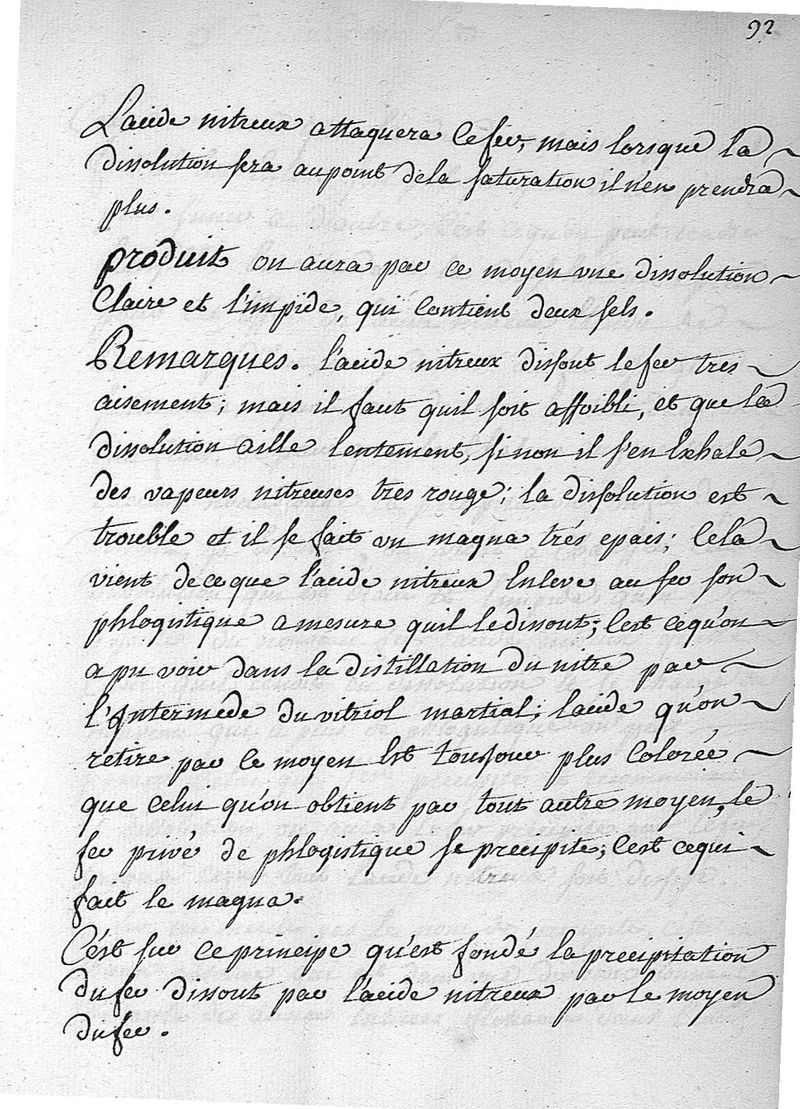 92
L'acide nitreux attaquera le fer, mais lorsque la
dissolution sera au point de la saturation il n'en prendra
plus.
produit on aura par ce moyen une dissolution
Claire et l'impide, qui Contient deux sels.
Remarques. l'acide nitreux dissout le fer tres
aisement; mais il faut quil soit affoibli, et que la
dissolution aille lentement, si non il s'en Exhale
des vapeurs nitreuses tres rouge; la dissolution est
trouble et il se fait un magna trés epais; Cela
vient de ce que l'acide nitreux Enleve au fer son
phlogistique a mesure quil le dissout; C'est ce qu'on
a pu voir dans la distillation du nitre par
l'Intermede du vitriol martial; lacide qu'on
retire par ce moyen Est toujour plus Colorée
que celui qu'on obtient par tout autre moyen, le
fer privé de phlogistique se precipite; C'est ce qui
fait le magna.
C'est sur ce principe qu'est fondé la precipitation
du fer dissout par l'acide nitreux par le moyen
du fer.